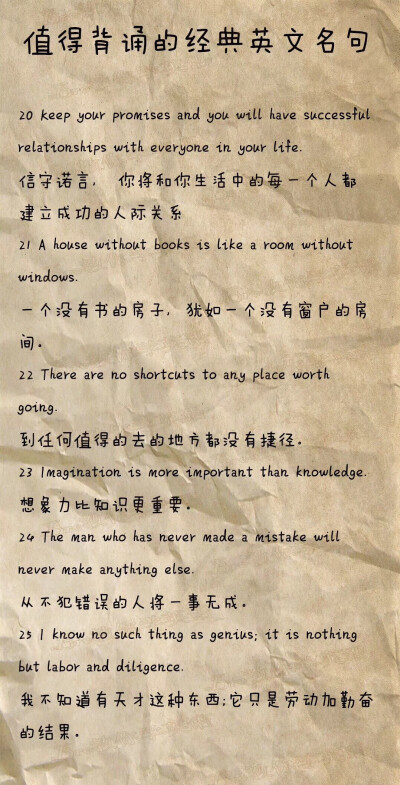 值得背诵的经典英文名句
20 keep your promises and you will have successful
relationships with everyone in your life.
信守诺言， 你将和你生活中的每一个人都
建立成功的人际关系
21 A house without books is like a room without
windows.
一个没有书的房子，犹如一个没有窗户的房
间。
22 There are no shortcuts to any place worth
going.
到任何值得的去的地方都没有捷径。
23 Imagination is more important than knowledge.
想象力比知识更重要。
24 The man who has never made a mistake will
never make anything else.
从不犯错误的人将一事无成。
25 I know no such thing as genius; it is nothing
but labor and diligence.
我不知道有天才这种东西;它只是劳动加勤奋
的结果。